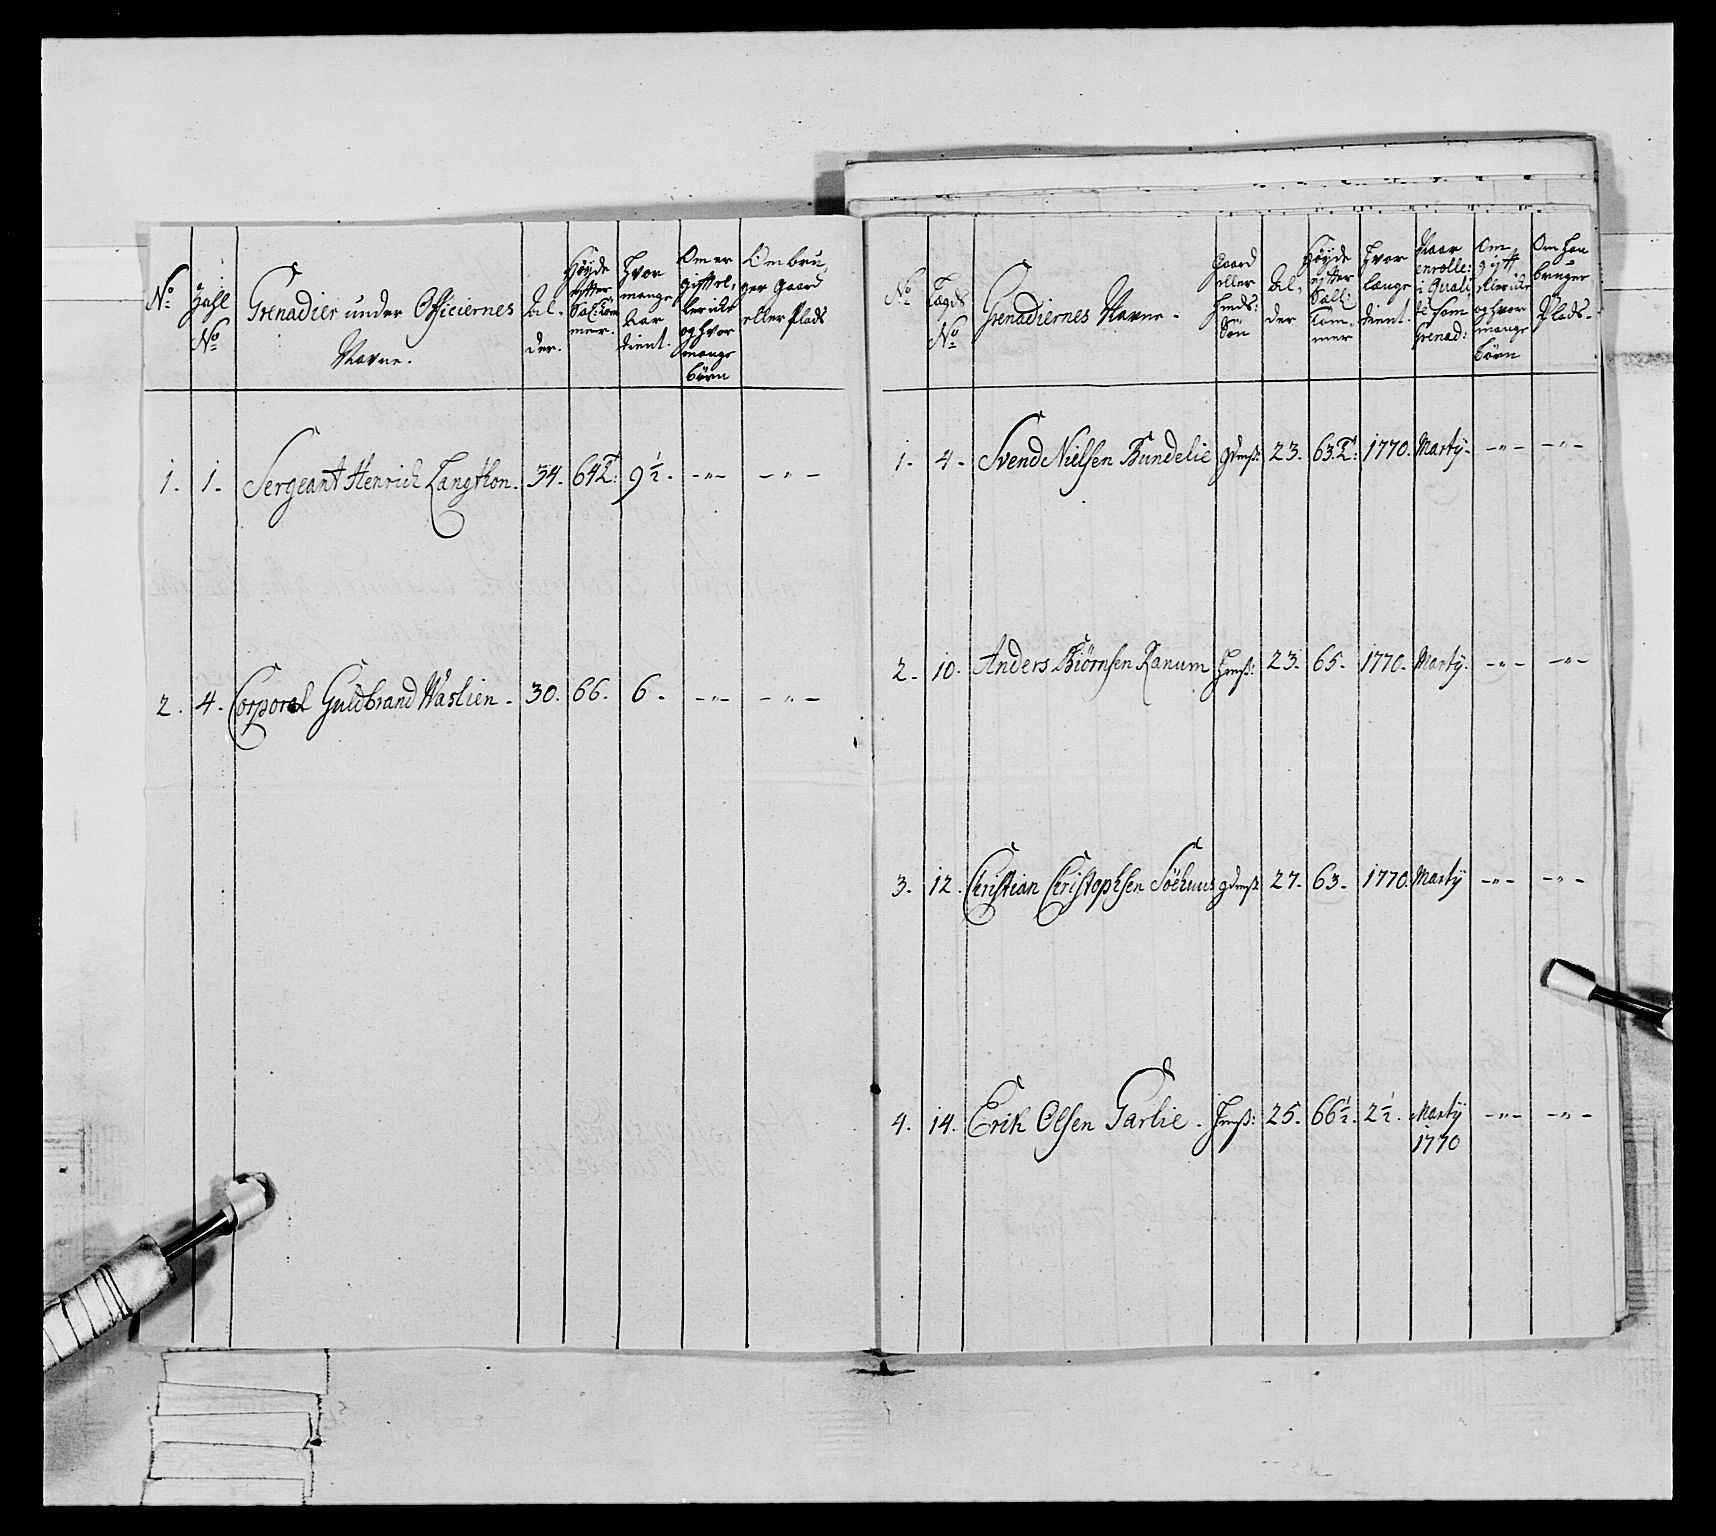 No
Zahl No
Grenadier under Officiernes Navne.
Al, der.
Høyde efter Sal: Tom mer.
Hvor mange Aar tient.
Om er gift el, ler icke og hvor mange børn
Om bru, ger Gaard eller Plads
1. 1. Sergeant Henrich Langthon. 34. 64 T: 9 1/2. -"- -"-
2. 4. Corporal Guldbrand Waslien. 30. 66. 6. -"- -"-
No
Lægds No
Grenadiernes Navne.
Gaard eller Huds: Søn
Al, der
Høyde efter Sall: Tom, mer
Hvor længe tient.
Naar enrolle: i Quali te som Grenad:
Om gift eller icke og hvor mange børn
Om han bruger Plads.
1. 4. Svend Nielsen Bundelie gdmß: 23. 63 T: 1770. Martÿ. -"- -"-
2. 10. Anders Biörnsen Ranum Hmß: 23. 65. 1770. Martÿ. -"- -"-
3. 12. Christian Christophsen Söehuus gdmß 27. 63. 1770. Martÿ -"- -"-
4. 14. Erik Olsen Garlie. Hmß: 25. 66 1/2. 2 1/2. Martÿ 1770 -"- -"-